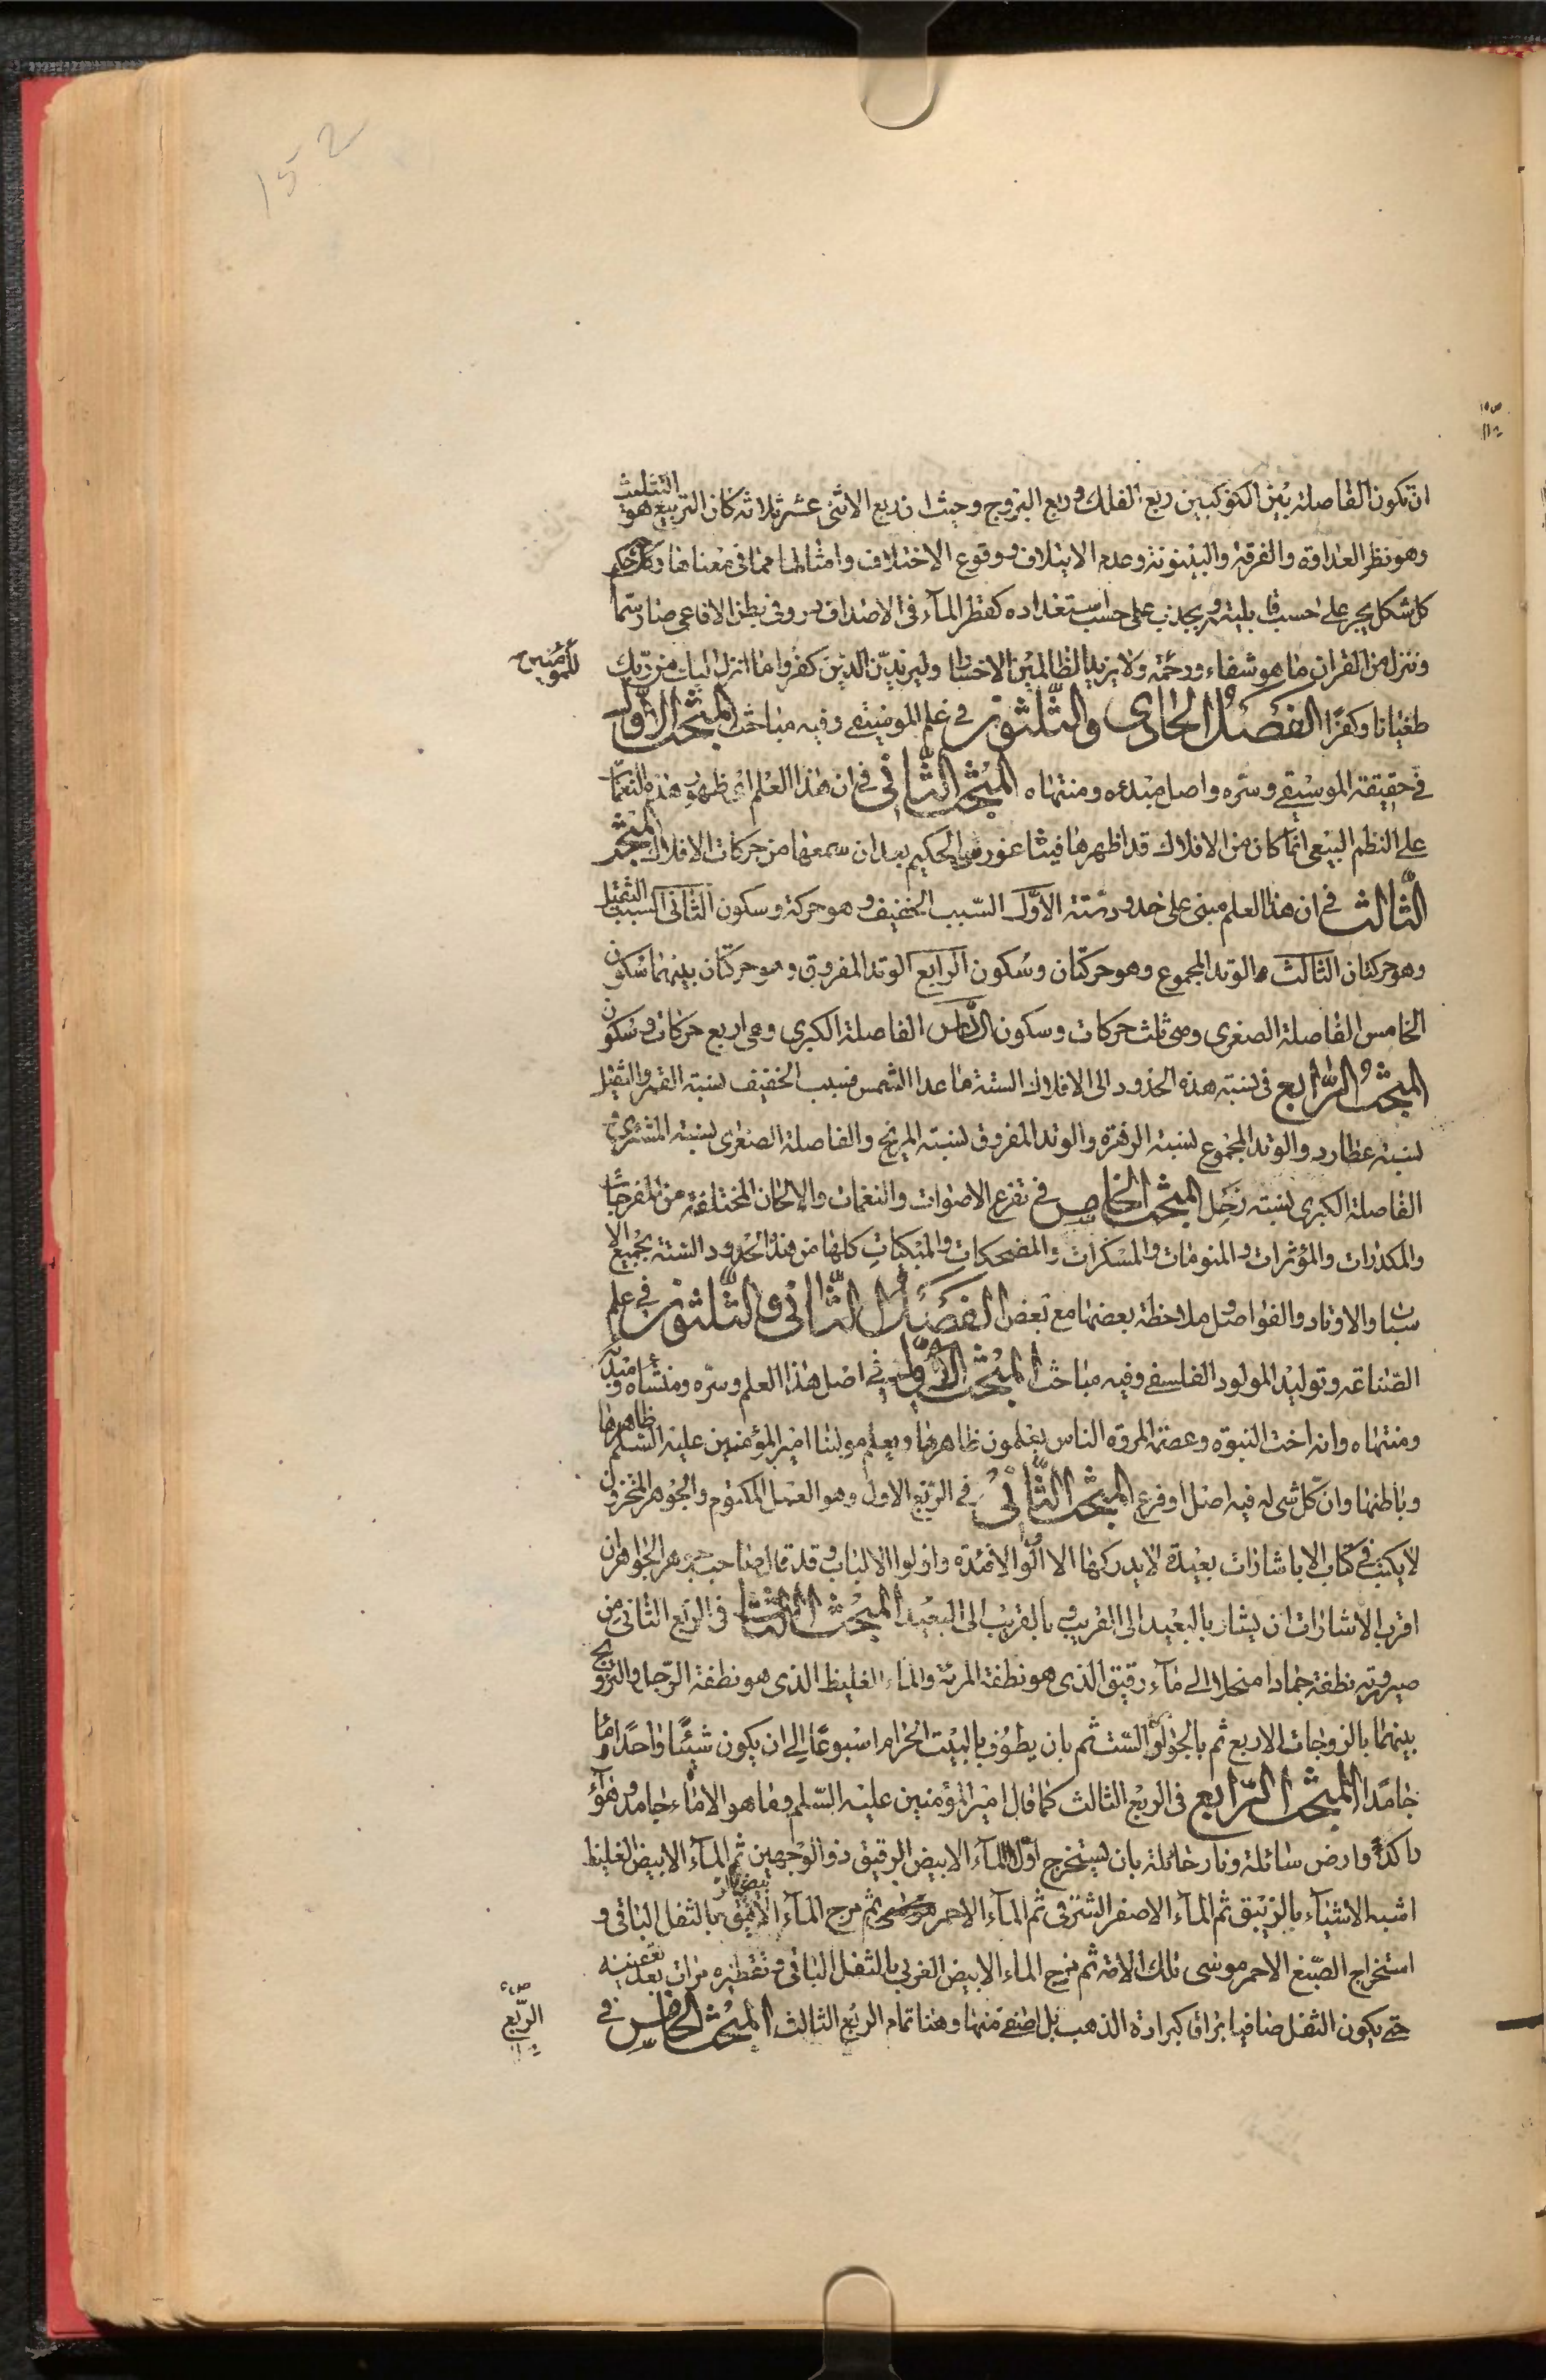 152
ان تكون الفاصلة بين الكوكبين ربع الفلك وربع البروج وحيث ان ربع الاثنى عشر ثلاثه كان التربيع هو التثليث
وهو نظر العداوة والفرقة والبينونة وعدم الايتلاف ووقوع الاختلاف وامثالها مما فى معناها وكل حكم
كل شكل يجرى على حسب قابليته ويجذب على حسب استعداده كقطر المآء فى الاصداف در وفى بطن الافاعى صار سمّا
وننزل من القران ما هو شفاء ورحمة ولا يزيد الظالمين الا خسارا وليزيدن الذين كفروا ما انزل اليك من ربك
للمؤمنين
طغيانا وكفرًا الفصل الحادى والثلثون فى علم الموسيقى وفيه مباحث المبحث الاول
فى حقيقة الموسيقى وسره واصل مبدءه ومنتهاه المبحث الثانى فى ان هذا العلم اى ظهور هذه النغمات
على النظم الطبيعى انما كان من الافلاك قد اظهرها فيثاغورس الحكيم بعد ان سمعها من حركات الافلاك المبحث
الثالث فى ان هذا العلم مبنى على حدود ستة الاول السبب الخفيف وهو حركة وسكون الثانى السبب الثقيل
وهو حركتان الثالث الوتد المجموع وهو حركتان وسكون الرابع الوتد المفروق وهو حركتان بينهما سكون
الخامس الفاصلة الصغرى وهى ثلث حركات وسكون السادس الفاصلة الكبرى وهى اربع حركات وسكون
المبحث الرابع فى نسبة هذه الحدود الى الافلاك الستة ما عدا الشمس فسبب الخفيف لنسبة القمر والثقيل
لنسبة عطارد والوتد المجموع لنسبة الزهرة والوتد المفروق لنسبة المريخ والفاصلة الصغرى لنسبة المشترى و
الفاصلة الكبرى لنسبة زحل المبحث الخامس فى تفرع الاصوات والنغمات والالحان المختلفة من المفرحات
والمكدرات والمؤثرات والمنومات والمسكرات والمضحكات والمبكيات كلها من هذه الحدود الستة بجميع الا
سباب والاوتاد والفواصل وملاحظة بعضها مع بعض الفصل الثانى والثلثون فى علم
الصناعة وتوليد المولود الفلسفى وفيه مباحث المبحث الاول فى اصل هذا العلم وسره ومنشاه ومبدئه
ومنتهاه وانه اخت النبوة وعصمة المروة الناس يعلمون ظاهرها ويعلم مولينا امير المؤمنين عليه السلم ظاهرها
وباطنها وان كل شى له فيه اصل او فرع المبحث الثانى فى الربع الاول وهو العمل المكتوم والجوهر المخزون
لا يكتب فى كتاب الا باشارات بعيدة لا يدركها الا اولوا الافئدة واولوا الالباب وقد قال صاحب جوهر الجواهر ان
اقرب الاشارات ان يشار بالبعيد الى القريب وبالقريب الى البعيد المبحث الثالث فى الربع الثانى من
صيرورته نطفة جمادا منحلا الى مآء رقيق الذى هو نطفة المرئة والماء الغليظ الذى هو نطفة الرجل والتزويج
بينهما بالزوجات الاربع ثم بالجوارى الست ثم بان يطوف بالبيت الحرام اسبوعًا الى ان يكون شيئًا واحدًا مائا
جامدا المبحث الرابع فى الربع الثالث كما قال امير المؤمنين عليه السلم وما هو الا ماء جامد وهوآء
راكد وارض سائلة ونار حائلة بان يستخرج اول المآء الابيض الرقيق ذو الوجهين ثم المآء الابيض الغليظ
اشبه الاشياء بالزيبق ثم المآء الاصفر الشرقى ثم المآء الاحمر ثم مزج المآء الابيض بالثفل الباقى و
استخراج الصبغ الاحمر موسى تلك الامة ثم مزج الماء الابيض الغربى بالثفل الباقى وتقطيره مرات بعد تعفينه
حتى يكون الثفل صافيا براقا كبرادة الذهب بل اصفى منها وهنا تمام الربع الثالث المبحث الخامس فى
الربع